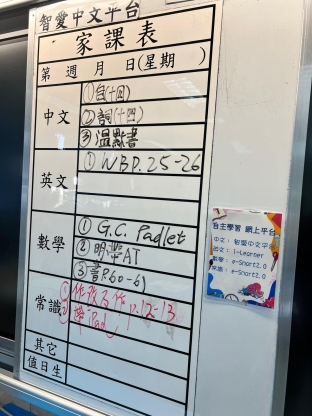 智愛中文平台
家課表
第 週 月 日(星期 )
中文
①自(十四)
②詞(十四)
③温默書
英文
① WB P.25-26
數學
① G.C. Padlet
② 明帶AT
③ P.60-61
常識
① 作 p.12-13
② 帶iPad
其它
值日生
自主學習 網上平台
中文：智愛中文平台
英文：i-Learner
數學：e-Smart2.0
常識：e-Smart2.0